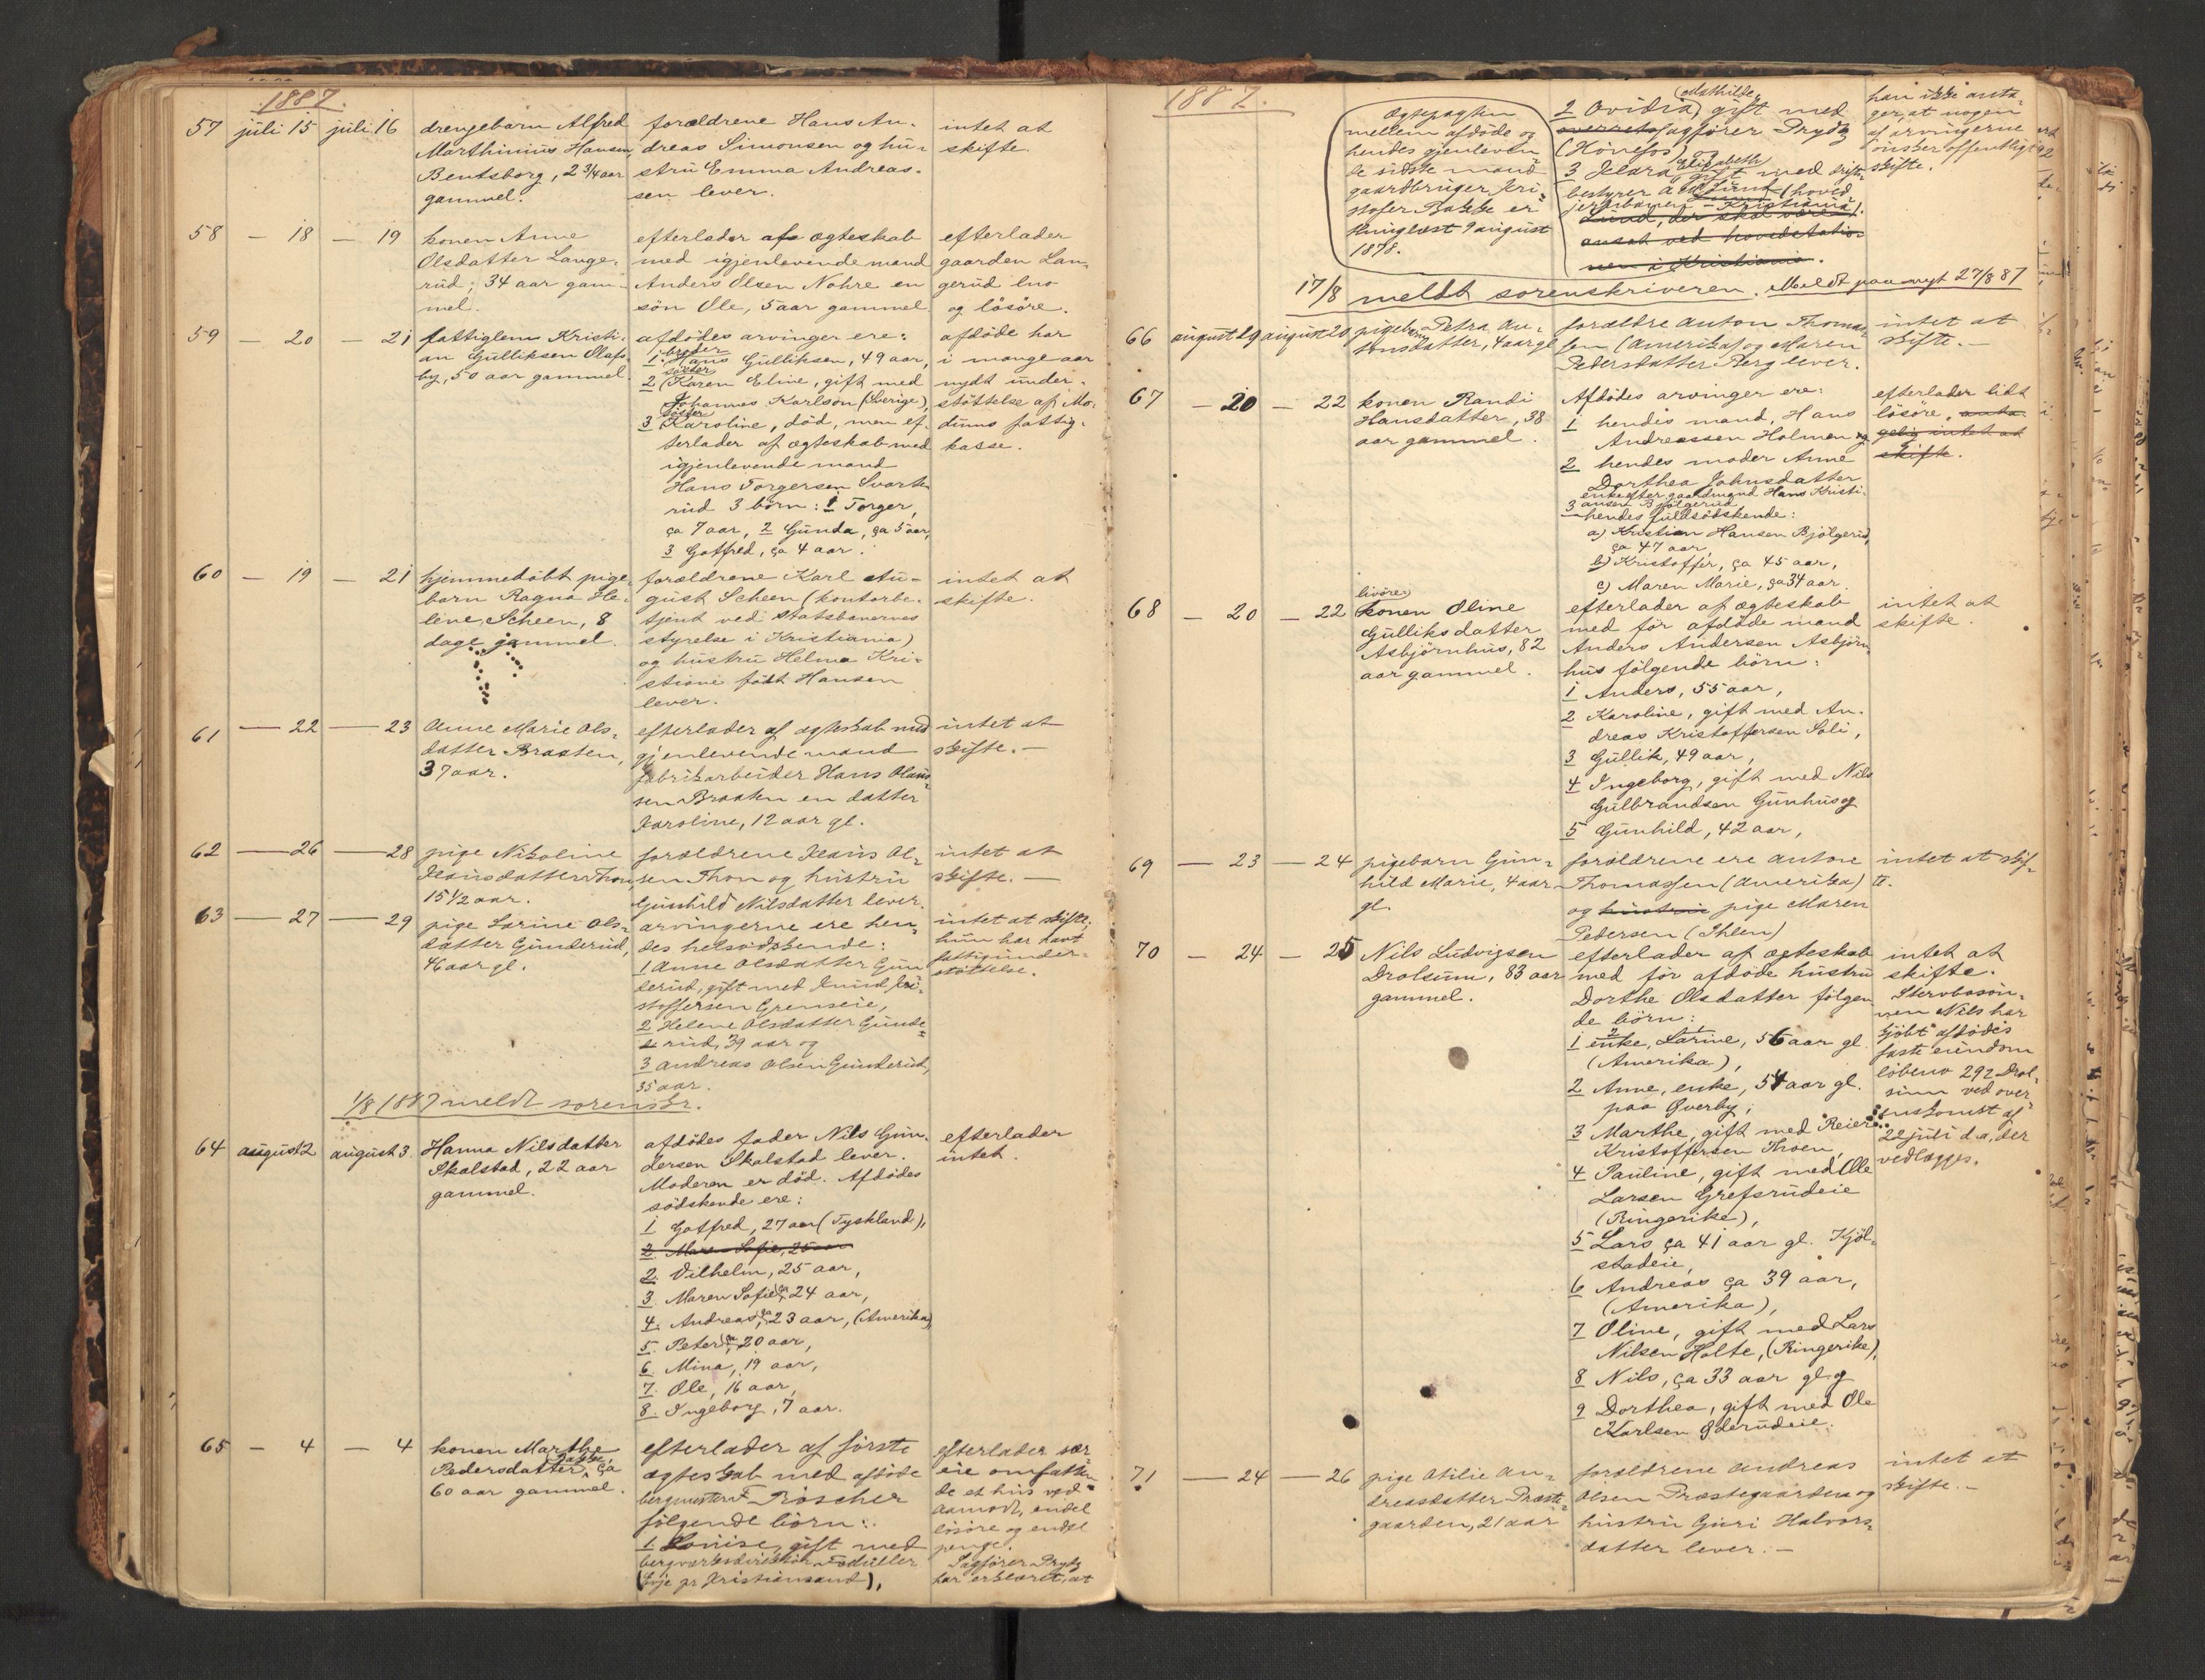 1887.
57 juli 15 juli 16
drengebarn Alfred
Marthinius Hansen
Bentsborg, 2 3/4 aar
gammel.
forældrene Hans An-
dreas Simonsen og hu-
stru Emma Andreas-
sen lever.
intet at
skifte.
58 — 18 — 19
konen Anne
Olsdatter Lange-
rud; 34 aar gam-
mel.
efterlader af ægteskab
med igjenlevende mand
Anders Olsen Nohre en
søn Ole, 5 aar gammel
efterlader
gaarden Lan-
gerud lno
og løsøre.
59 — 20 — 21
fattiglem Kristi-
an Gulliksen Olafs-
by, 50 aar gammel
afdødes arvinger ere:
broder
1. Hans Gulliksen, 49 aar,
søster
2 Karen Eline, gift med
Johannes Karlson (Sverige),
søster
3 Karoline, død, men ef-
terlader af ægteskab med
igjenlevende mand
Hans Torgersen Svarte-
rud 3 børn: 1 Torger,
ca 7 aar, 2 Gunda, ca 5 aar,
3 Gotfred, ca 4 aar.
afdøde har
i mange aar
nydt under-
støttelse af Mo-
dums fattig-
kasse.
60 — 19 — 21
hjemmedøbt pige-
barn Ragna He-
lene Scheen, 8
dage gammel.
forældrene Karl Au-
gust Scheen (kontorbe-
tjent ved statsbanernes
styrelse i Kristiania)
og hustru Helma Kri-
stiane født Hansen
lever.
intet at
skifte.
61 — 22 — 23
Anne Marie Ols-
datter Braaten,
37 aar.
efterlader af ægteskab med
gjenlevende mand
fabrikarbeider Hans Olaus-
sen Braaten en datter
Karoline, 12 aar gl.
intet at
skifte. —
62 — 26 — 28
pige Nikoline
Klausdatter Thon,
15 1/2 aar.
forældrene Klaus Ol-
sen Thon og hustru
Gunhild Nilsdatter lever.
intet at
skifte. —
63 — 27 — 29
pige Larine Ols-
datter Gunderud,
46 aar gl.
arvingerne ere hen-
des helsødskende:
1 Anne Olsdatter Gun-
derud, gift med Knud Kri-
stoffersen Grenseie,
2 Helene Olsdatter Gunde-
rud, 39 aar og
3 Andreas Olsen Gunderud,
35 aar.
intet at skifte;
hun har havt
fattigunder-
støttelse.
1/8 1887 meldt sorenskr.
64 august 2 august 3
Hanna Nilsdatter
Skalstad, 22 aar
gammel.
afdødes fader Nils Gun-
dersen Skalstad lever.
Moderen er død. Afdødes
sødskende ere:
1 Gotfred, 27 aar (Tyskland),
2. Maren Sofie, 25 aar
2. Vilhelm, 25 aar,
3. Maren Sofie ca 24 aar,
4. Andreas, ca 23 aar, (Amerika),
5. Peter, ca 20 aar,
6 Mina, 19 aar,
7. Ole, 16 aar,
8. Ingeborg, 7 aar.
efterlader
intet.
65 — 4 — 4
konen Marthe
Pedersdatter Bakke, ca
60 aar gammel.
efterlader af første
ægteskab med afdøde
bergmester F Røscher
følgende børn:
1. Louise, gift med
bergværksdirektør Fodüller
(Evje pr Kristiansand),
efterlader sær-
eie omfatten-
de et hus ved
Aamodt, endel
løsøre og endel
penge.
Sagfører Prydz
har erklæret, at
1887.
Ægtepagten
mellem afdøde og
hendes gjenleven-
de sidste mand
gaardbruger Kri-
stofer Bakke er
thinglæst 9 august
1878.
2 Ovidia (Mathilde) gift med
overrets sagfører Prydz
(Hønefos)
3 Klara Elisabeth gift med drifts-
bestyrer A. Lund (hoved
jernbanen — Kristiania).
Lund, der skal være
ansat ved hovedstatio-
nen i Kristiania.
han ikke anta-
ger, at nogen
af arvingerne
ønsker offentligt
skifte.
17/8 meldt sorenskriveren. Meldt paa nyt 27/8 87
66 august 19 august 20
pigebarn Petra An-
tonsdatter, 4 aar gl
forældre Anton Thomas-
sen (Amerika) og Maren
Pedersdatter Berg lever.
intet at
skifte. —
67 — 20 — 22
konen Randi
Hansdatter, 38
aar gammel.
Afdødes arvinger ere:
1 hendes mand, Hans
Andreassen Holmen og
2 hendes moder Anne
Dorthea Johnsdatter
enke efter gaardmand Hans Kristi-
ansen Bjølgerud
3 hendes fuldsødskende:
a) Kristian Hansen Bjølgerud,
ca 47 aar,
b) Kristoffer, ca 45 aar,
c) Maren Marie, ca 34 aar
efterlader lidt
løsøre, anta-
gelig intet at
skifte.
68 — 20 — 22
livøre
konen Oline
Gulliksdatter
Asbjørnhus, 82
aar gammel.
efterlader af ægteskab
med før afdøde mand
Anders Andersen Asbjørn-
hus følgende børn:
1 Anders, 55 aar,
2 Karoline, gift med An-
dreas Kristoffersen Soli,
3 Gullik, 49 aar,
4 Ingeborg, gift med Nils
Gulbrandsen Gunhus og
5 Gunhild, 42 aar,
intet at
skifte.
69 — 23 — 24
pigebarn Gun-
hild Marie, 4 aar
gl.
forældrene ere Anton
Thomassen (Amerika)
og hustru pige Maren
Pedersen (Ihlen)
intet at skif-
te.
70 — 24 — 25
Nils Ludvigsen
Drolsum, 83 aar
gammel.
efterlader af ægteskab
med før afdøde hustru
Dorthe Olsdatter følgen-
de børn:
1 enke, Larine, 56 aar gl.
(Amerika),
2 Anne, enke, 54 aar gl.
paa Øverby;
3 Marthe, gift med Reier
Kristoffersen Thoen,
4 Pauline, gift med Ole
Larsen Grefsrudeie
(Ringerike),
5 Lars ca 41 aar gl. Kjøl-
stadeie,
6 Andreas ca 39 aar,
(Amerika),
7 Oline, gift med Lars
Nilsen Holte, (Ringerike),
8 Nils, ca 33 aar gl. og
9 Dorthea, gift med Ole
Karlsen Øderudeie.
intet at
skifte.
Stervbosøn-
nen Nils har
kjøbt afdødes
faste eiendom
løbeno 292 Drol-
sum ved over-
enskomst af
22 juli d.a, der
vedlægges.
71 — 24 — 26
pige Otilie An-
dreasdatter Præste-
gaarden, 21 aar
forældrene Andreas
Olsen Præstegaarden og
hustru Guri Halvors-
datter lever. —
intet at
skifte. —